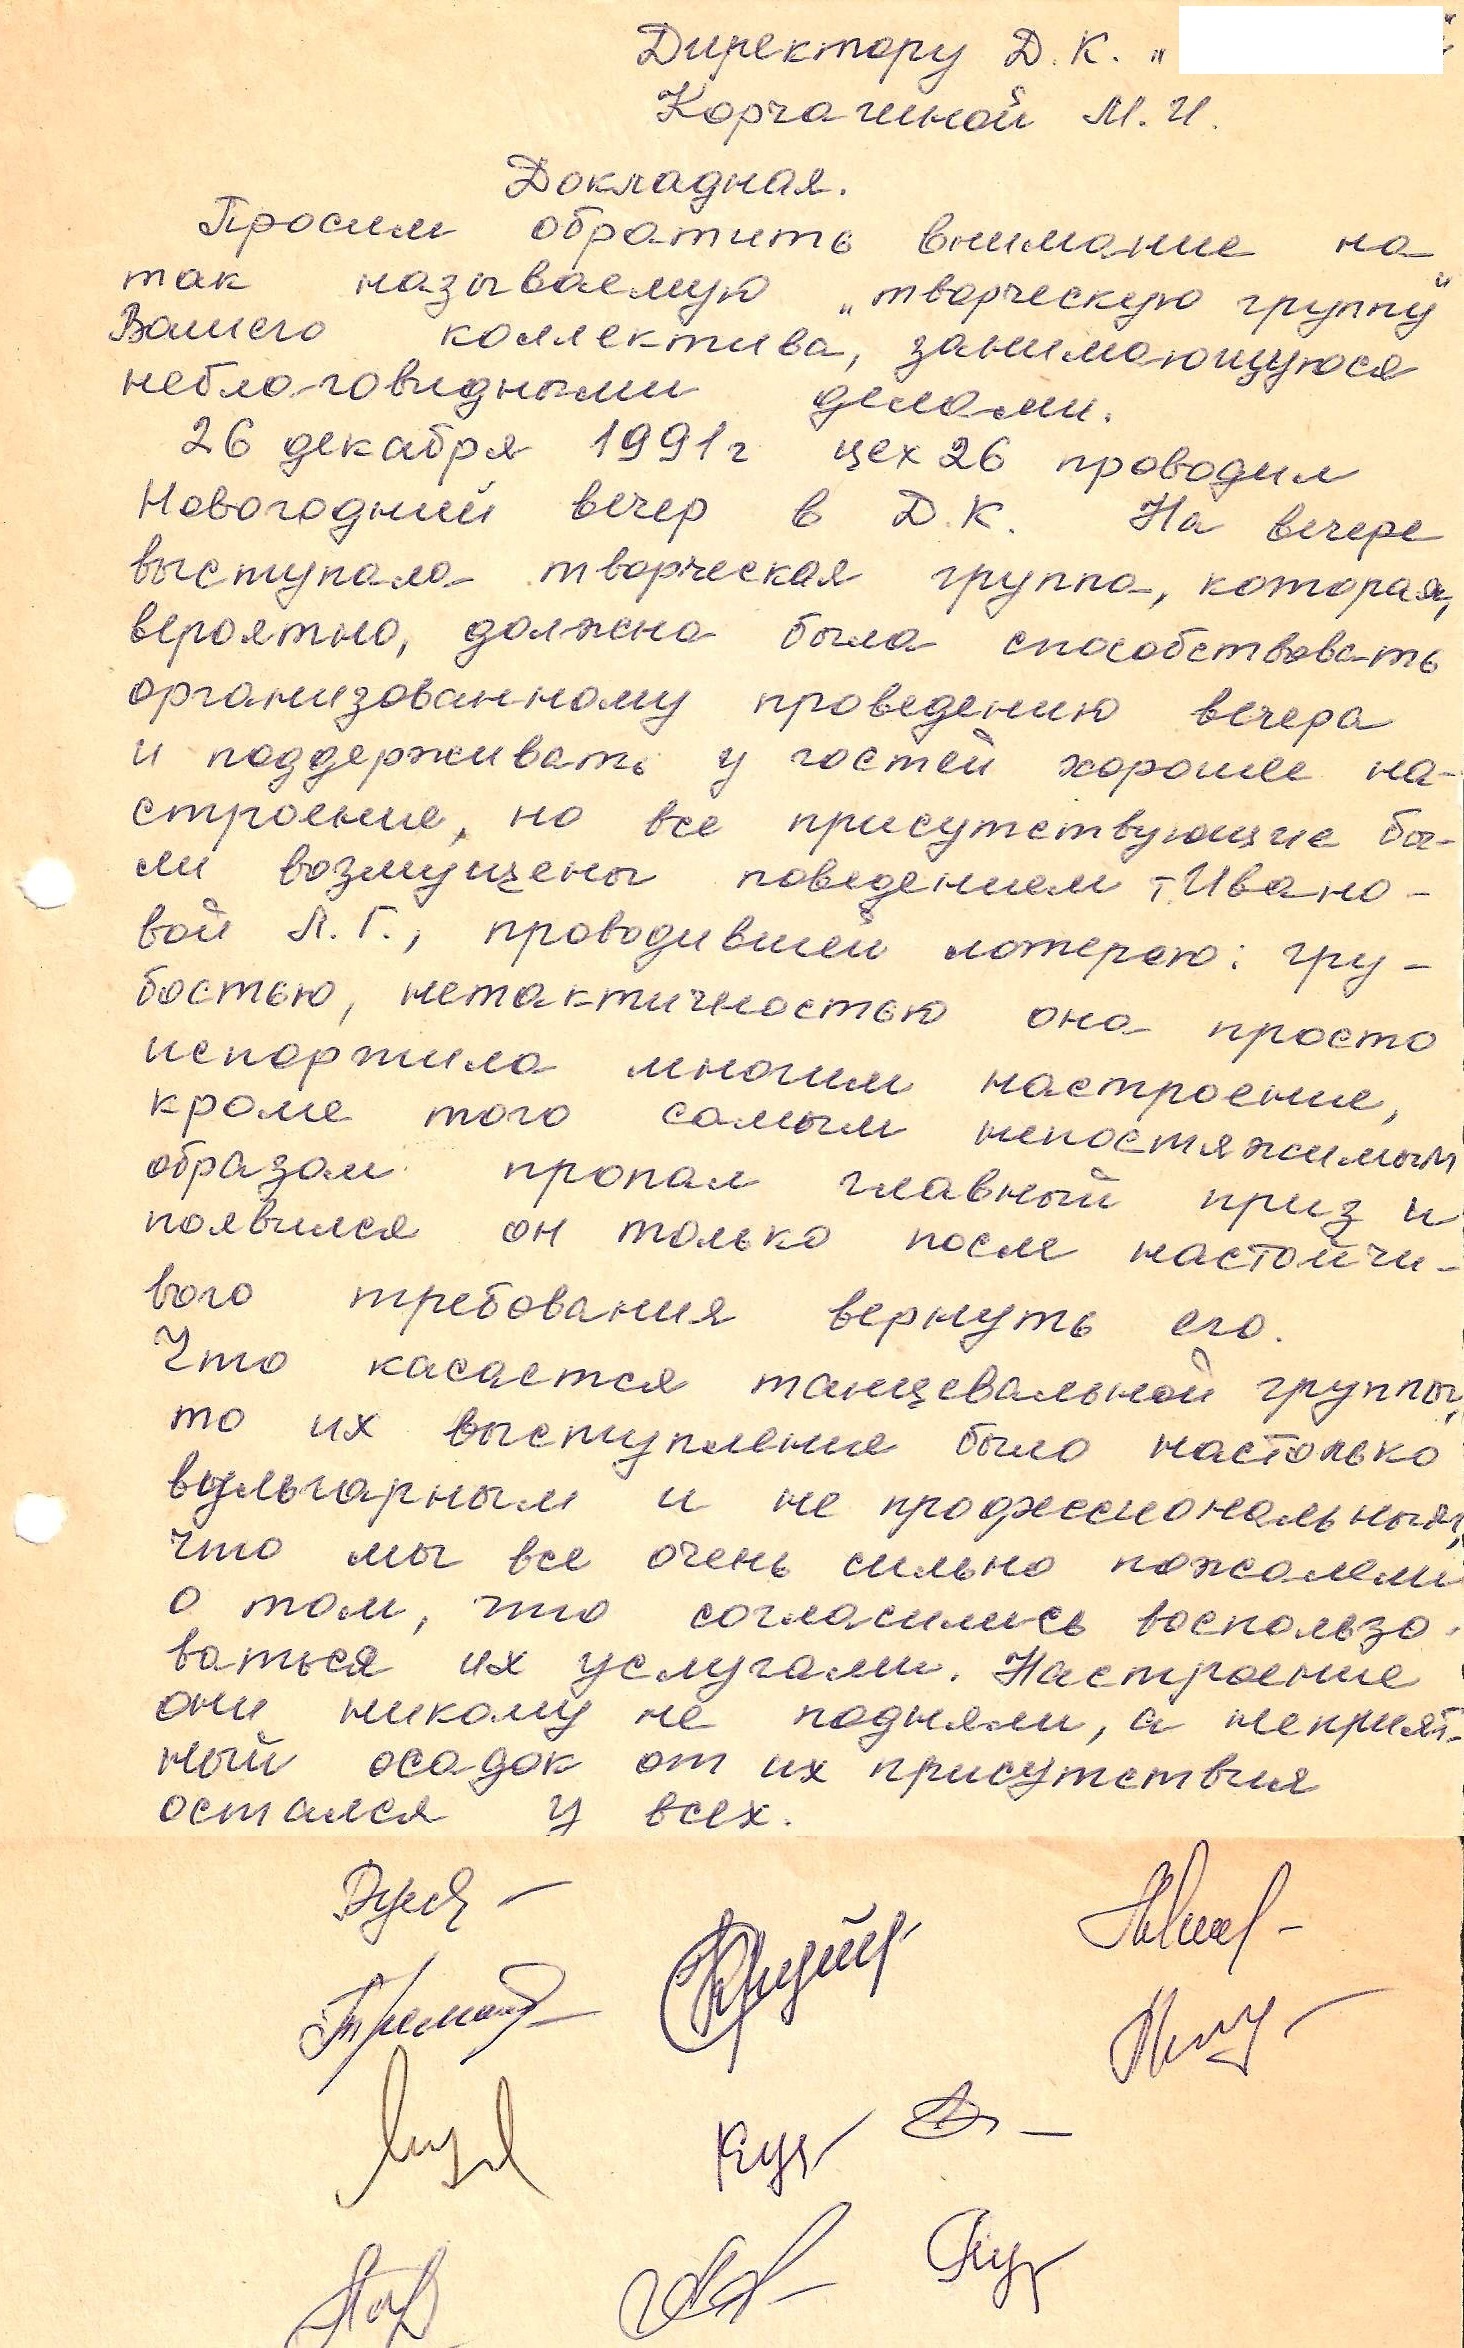 Директору Д.К. „
Корчагиной М.И.
Докладная.
Просим обратить внимание на
так называемую „творческую группу"
Вашего коллектива, занимающуюся
неблаговидными делами.
26 декабря 1991г цех 26 проводил
Новогодний вечер в Д.К. На вечере
выступала творческая группа, которая,
вероятно, должна была способствовать
организованному проведению вечера
и поддерживать у гостей хорошее на-
строение, но все присутствующие бы-
ли возмущены поведением т. Ивано-
вой Л.Г., проводившей лотерею: гру-
бостью, нетактичностью она просто
испортила многим настроение,
кроме того самым непостяжимым
образом пропал главный приз и
появился он только после настойчи-
вого требования вернуть его.
Что касается танцевальной группы,
то их выступление было настолько
вульгарным и не профессиональным,
что мы все очень сильно пожалели
о том, что согласились воспользо-
ваться их услугами. Настроение
они никому не подняли, а неприят-
ный осадок от их присутствия
остался у всех.